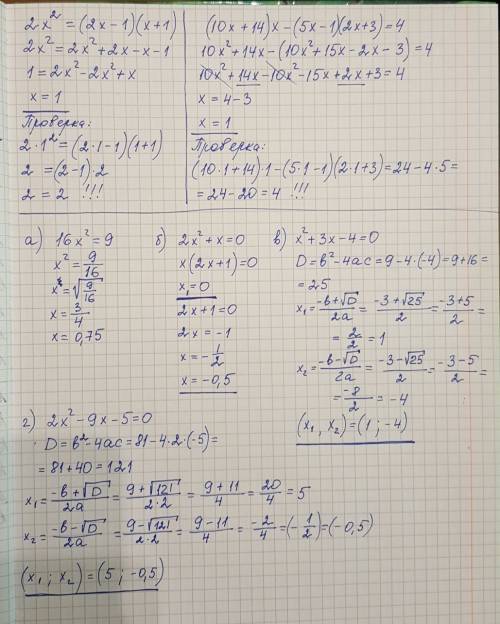 2x² = (2x-1)(x+1)
2x² = 2x² + 2x - x - 1
1 = 2x² - 2x² + x
x = 1
Проверка:
2·1² = (2·1-1)(1+1)
2 = (2-1)·2
2 = 2 !!!
(10x+14)x - (5x-1)(2x+3) = 4
10x² + 14x - (10x² + 15x - 2x - 3) = 4
10x² + 14x - 10x² - 15x + 2x + 3 = 4
x = 4 - 3
x = 1
Проверка:
(10·1+14)·1 - (5·1-1)(2·1+3) = 24 - 4·5 =
= 24 - 20 = 4 !!!
а) 16x² = 9
x² = 9/16
x = √(9/16)
x = 3/4
x = 0,75
б) 2x² + x = 0
x(2x+1) = 0
x₁ = 0
2x + 1 = 0
2x = -1
x = -1/2
x = -0,5
в) x² + 3x - 4 = 0
D = b² - 4ac = 9 - 4·(-4) = 9 + 16 =
= 25
x₁ = (-b+√D)/2a = (-3+√25)/2 = (-3+5)/2 =
= 2/2 = 1
x₂ = (-b-√D)/2a = (-3-√25)/2 = (-3-5)/2 =
= -8/2 = -4
(x₁, x₂) = (1; -4)
г) 2x² - 9x - 5 = 0
D = b² - 4ac = 81 - 4·2·(-5) =
= 81 + 40 = 121
x₁ = (-b+√D)/2a = (9+√121)/2·2 = (9+11)/4 = 20/4 = 5
x₂ = (-b-√D)/2a = (9-√121)/2·2 = (9-11)/4 = -2/4 = (-1/2) = (-0,5)
(x₁; x₂) = (5; -0,5)